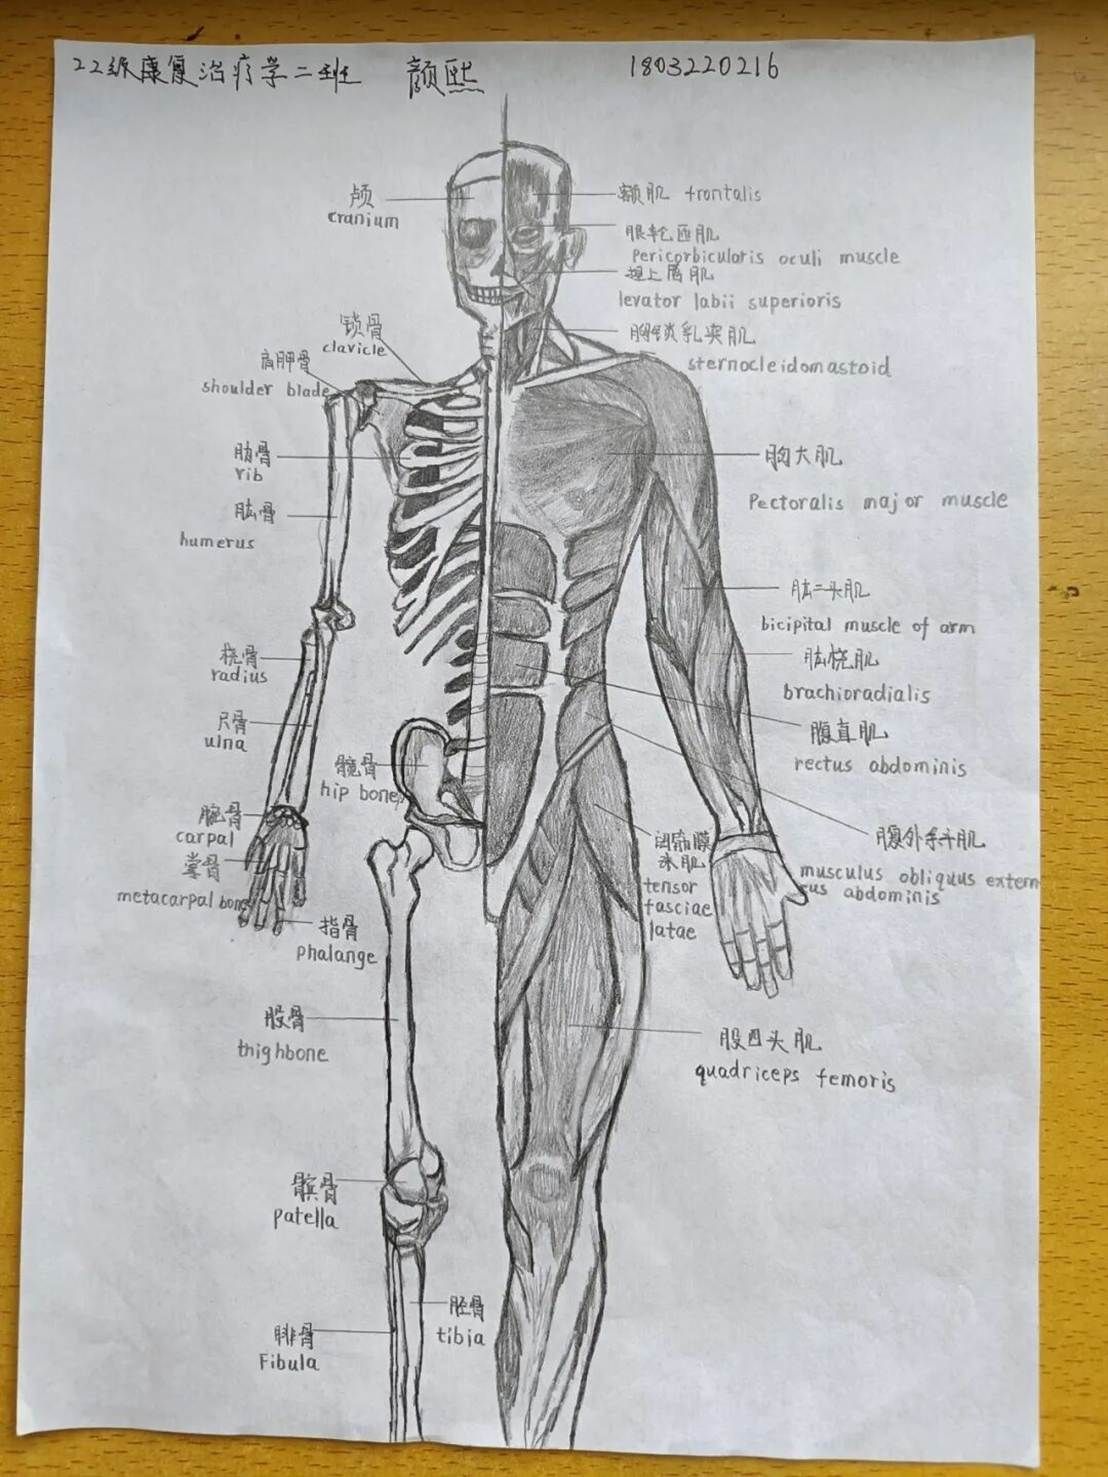 22级康复治疗学二班 颜熙 1803220216
颅
cranium
锁骨
clavicle
肩胛骨
shoulder blade
肋骨
rib
肱骨
humerus
桡骨
radius
尺骨
ulna
髋骨
hip bones
腕骨
carpal
掌骨
metacarpal bone
指骨
phalange
股骨
thighbone
髌骨
patella
胫骨
tibia
腓骨
Fibula
额肌 frontalis
眼轮匝肌
pericorbicularis oculi muscle
提上唇肌
levator labii superioris
胸锁乳突肌
sternocleidomastoid
胸大肌
Pectoralis major muscle
肱二头肌
bicipital muscle of arm
肱桡肌
brachioradialis
腹直肌
rectus abdominis
腹外斜肌
musculus obliquus extern
us abdominis
阔筋膜
张肌
tensor
fasciae
latae
股四头肌
quadriceps femoris